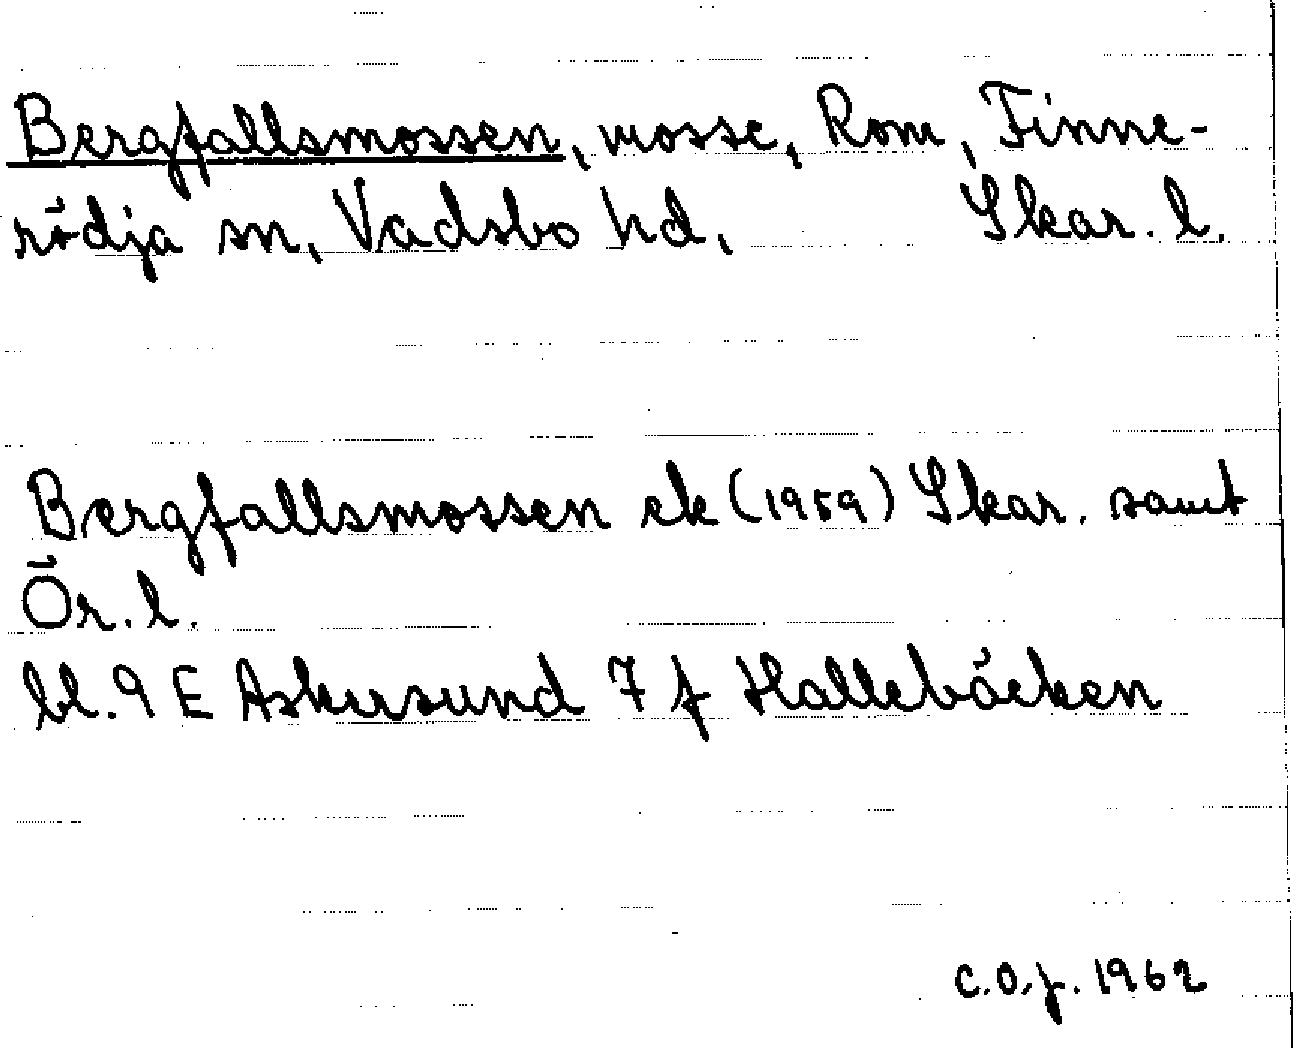 Bergfallsmossen, mosse, Rom, Finne-
rödja sn, Vadsbo hd, Skar. l.
Bergfallsmossen ek (1959) Skar. samt
Ör. l.
bl. 9 E Askersund 7 f Hallebäcken
C.O.f. 1962